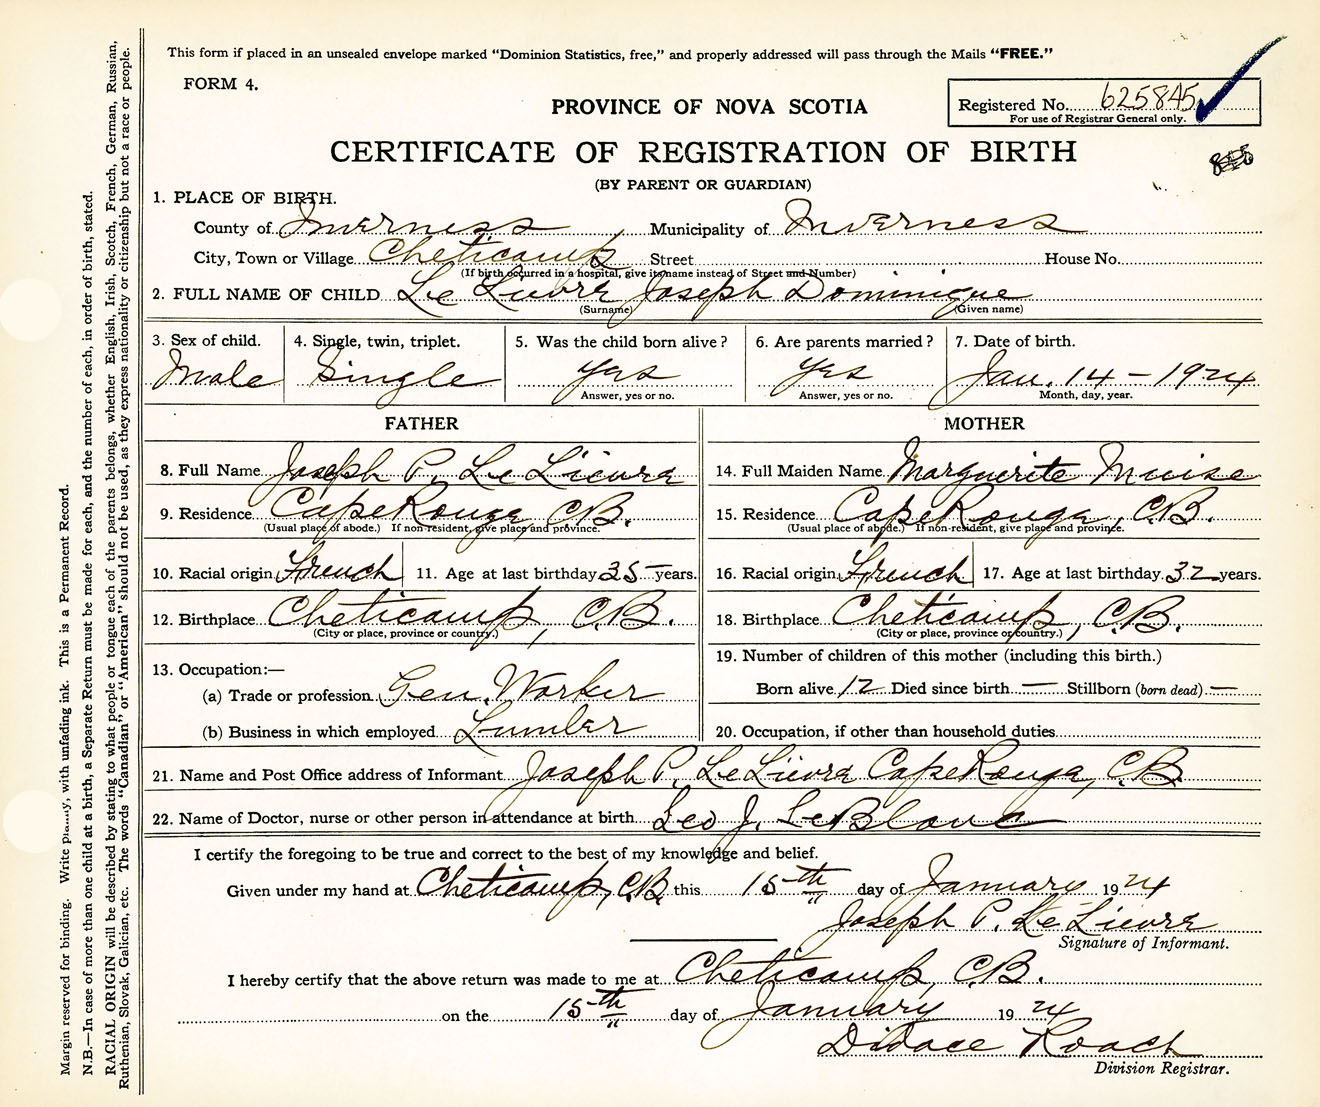 This form if placed in an unsealed envelope marked "Dominion Statistics, free," and properly addressed will pass through the Mails "FREE."
FORM 4.
PROVINCE OF NOVA SCOTIA
Registered No. 625845
For use of Registrar General only.
CERTIFICATE OF REGISTRATION OF BIRTH
(BY PARENT OR GUARDIAN)
1. PLACE OF BIRTH.
County of Inverness Municipality of Inverness
City, Town or Village Cheticamp Street House No.
(If birth occurred in a hospital, give its name instead of Street and Number)
2. FULL NAME OF CHILD Le Lievre Joseph Dominique
(Surname) (Given name)
3. Sex of child. 4. Single, twin, triplet. 5. Was the child born alive? 6. Are parents married? 7. Date of birth.
Male Single Yes Yes Jan. 14 - 1924
Answer, yes or no. Answer, yes or no. Month, day, year.
FATHER MOTHER
8. Full Name Joseph P. Le Lievre 14. Full Maiden Name Marguerite Muise
9. Residence Cape Rouge, C.B. 15. Residence Cape Rouge, C.B.
(Usual place of abode.) If non-resident, give place and province. (Usual place of abode.) If non-resident, give place and province.
10. Racial origin French 11. Age at last birthday 35 years. 16. Racial origin French 17. Age at last birthday 32 years.
12. Birthplace Cheticamp, C.B. 18. Birthplace Cheticamp, C.B.
(City or place, province or country.) (City or place, province or country.)
13. Occupation:— 19. Number of children of this mother (including this birth.)
(a) Trade or profession Gen. Worker Born alive 12 Died since birth — Stillborn (born dead) —
(b) Business in which employed Lumber 20. Occupation, if other than household duties
21. Name and Post Office address of Informant Joseph P. Le Lievre Cape Rouge, C.B.
22. Name of Doctor, nurse or other person in attendance at birth Leo J. LeBlanc
I certify the foregoing to be true and correct to the best of my knowledge and belief.
Given under my hand at Cheticamp, C.B. this 15th day of January 1924
Joseph P. Le Lievre
Signature of Informant.
I hereby certify that the above return was made to me at Cheticamp, C.B.
on the 15th day of January 1924
Didace Roach
Division Registrar.
Margin reserved for binding. Write plainly, with unfading ink. This is a Permanent Record.
N.B.—In case of more than one child at a birth, a Separate Return must be made for each, and the number of each, in order of birth, stated.
RACIAL ORIGIN will be described by stating to what people or tongue each of the parents belongs, whether English, Irish, Scotch, French, German, Russian,
Ruthenian, Slovak, Galician, etc. The words "Canadian" or "American" should not be used, as they express nationality or citizenship but not a race or people.